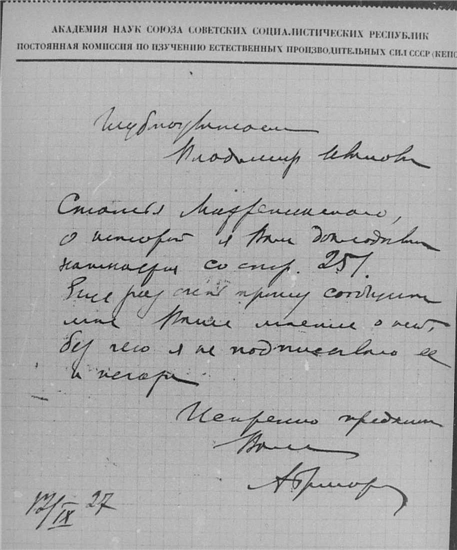 АКАДЕМИЯ НАУК СОЮЗА СОВЕТСКИХ СОЦИАЛИСТИЧЕСКИХ РЕСПУБЛИК
ПОСТОЯННАЯ КОМИССИЯ ПО ИЗУЧЕНИЮ ЕСТЕСТВЕННЫХ ПРОИЗВОДИТЕЛЬНЫХ СИЛ СССР (КЕПС
Глубокоуважаемый
Владимир Иванович
Статья
о которой я Вам докладывал
напечатана со стр. 251.
Еще раз прошу сообщить
мне Ваше мнение о ней,
без чего я не подписываю ее
к печати
Искренно преданный
Вам
12/IX 27